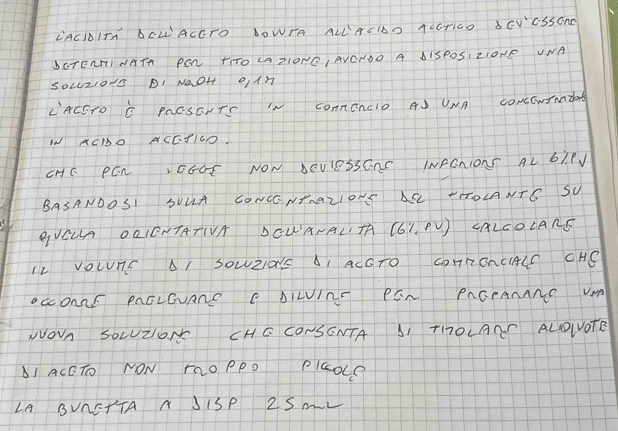 L'ACIDITÀ DELL'ACETO DOVUTA ALL'ACIDO ACETICO DEV'ESSERE
DETERMINATA PER TITOLAZIONE, AVENDO A DISPOSIZIONE UNA
SOLUZIONE DI NaOH 0,1M
L'ACETO È PRESENTE IN COMMERCIO AD UNA
IN ACIDO ACETICO.
CHE PER LEGGE NON DEV'ESSERE INFERIORE AL 6% PV
BASANDOSI SULLA CONCENTRAZIONE DEL TITOLANTE SU
QUELLA ORIENTATIVA DELL'ANALITA (6% PV) CALCOLARE
IL VOLUME DI SOLUZIONE DI ACETO COMMERCIALE CHE
OCCORRE PRELEVARE E DILUIRE PER PREPARARE UNA
NUOVA SOLUZIONE CHE CONSENTA DI TITOLARE ALIQUOTE
DI ACETO NON TROPPO PICCOLE
LA BURETTA A DISP 25 mL